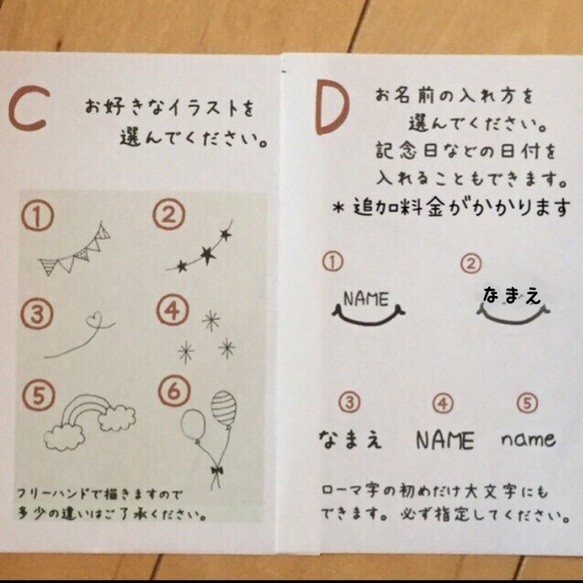 C
お好きなイラストを
選んでください。
①
②
③
④
⑤
⑥
フリーハンドで描きますので
多少の違いはご了承ください。
D
お名前の入れ方を
選んでください。
記念日などの日付を
入れることもできます。
*追加料金がかかります
①
②
NAME
なまえ
③
④
⑤
なまえ
NAME
name
ローマ字の初めだけ大文字にも
できます。必ず指定してください。